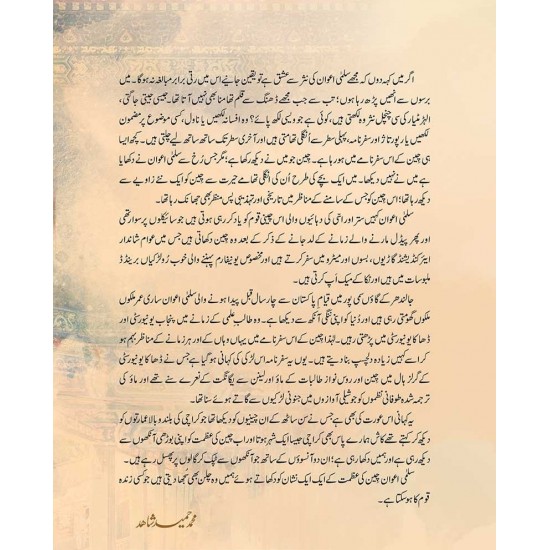 اگر میں کہہ دوں کہ مجھے سلمیٰ اعوان کی نثر سے عشق ہے تو یقین جانیے اس میں رتی برابر مبالغہ نہ ہوگا۔ میں
برسوں سے انھیں پڑھ رہا ہوں؛ تب سے جب مجھے ڈھنگ سے قلم تھامنا بھی نہیں آتا تھا۔ جیسی جیتی جاگتی،
الہڑ مٹیار کی سی چنچل نثر وہ لکھتی ہیں، کوئی ہے جو ویسی لکھ پائے؟ وہ افسانہ لکھیں یا ناول، کسی موضوع پر مضمون
لکھیں یا رپورتاژ اور سفرنامہ، پہلی سطر سے اُنگلی تھامتی ہیں اور آخری سطر تک ساتھ ساتھ لیے چلتی ہیں۔ کچھ ایسا
ہی چین کے اس سفرنامے میں ہو رہا ہے۔ چین جو میں نے دیکھ رکھا ہے؛ مگر جس رُخ سے سلمیٰ اعوان نے دکھایا
ہے میں نے نہیں دیکھا۔ میں ایک بچے کی طرح اُن کی انگلی تھامے حیرت سے چین کو ایک نئے زاویے سے
دیکھ رہا تھا؛ اس چین کو جس کے سامنے کے مناظر میں تاریخی اور تہذیبی پس منظر بھی جھانک رہا تھا۔
سلمیٰ اعوان کہیں ستر اور اسی کی دہائیوں والی اس چینی قوم کو یاد کر رہی ہوتی ہیں جو سائیکلوں پر سوار تھی
اور پھر پیڈل مارنے والے زمانے کے لد جانے کے ذکر کے بعد وہ چین دکھاتی ہیں جس میں عوام شاندار
ایئرکنڈیشنڈ گاڑیوں، بسوں اور میٹرو میں سفر کرتے ہیں اور مخصوص یونیفارم پہننے والی خوب رُو لڑکیاں برینڈڈ
ملبوسات میں ہیں اور نکا کے میک اَپ کرتی ہیں۔
جالندھر کے گاؤں سمی پور میں قیامِ پاکستان سے چار سال قبل پیدا ہونے والی سلمیٰ اعوان ساری عمر ملکوں
ملکوں گھومتی رہی ہیں اور دُنیا کو اپنی ننگی آنکھ سے دیکھا ہے۔ وہ طالبِ علمی کے زمانے میں پنجاب یونیورسٹی اور
ڈھاکا یونیورسٹی میں پڑھتی رہی ہیں۔ لہٰذا چین کے اس سفرنامے میں یہاں وہاں کے اور ہر زمانے کے مناظر بہم ہو
کر اسے کہیں زیادہ دلچسپ بنا دیتے ہیں۔ یوں یہ سفرنامہ اس لڑکی کی کہانی ہو گیا ہے جس نے ڈھاکا یونیورسٹی
کے گرلز ہال میں چین اور روس نواز طالبات کے ماؤ اور لینن سے یگانگت کے نعرے سنے تھے اور ماؤ کی
ترجمہ شدہ طوفانی نظموں کو جوشیلی آوازوں میں جنونی لڑکیوں سے گاتے ہوئے سنا تھا۔
یہ کہانی اس عورت کی بھی ہے جس نے سن ساٹھ کے ان چینیوں کو دیکھا تھا جو کراچی کی بلند و بالا عمارتوں کو
دیکھ کر کہتے تھے کاش ہمارے پاس بھی کراچی جیسا ایک شہر ہوتا اور اب چین کی عظمت کو اپنی بوڑھی آنکھوں سے
دیکھ رہی ہے اور ہمیں دکھا رہی ہے؛ ان دو آنسوؤں کے ساتھ جو آنکھوں سے ٹپک کر گالوں پر پھسل رہے ہیں۔
سلمیٰ اعوان چین کی عظمت کے ایک ایک نشان کو دکھاتے ہوئے ہمیں وہ چلن بھی سجھا دیتی ہیں جو کسی زندہ
قوم کا ہو سکتا ہے۔
محمد حمید شاہد